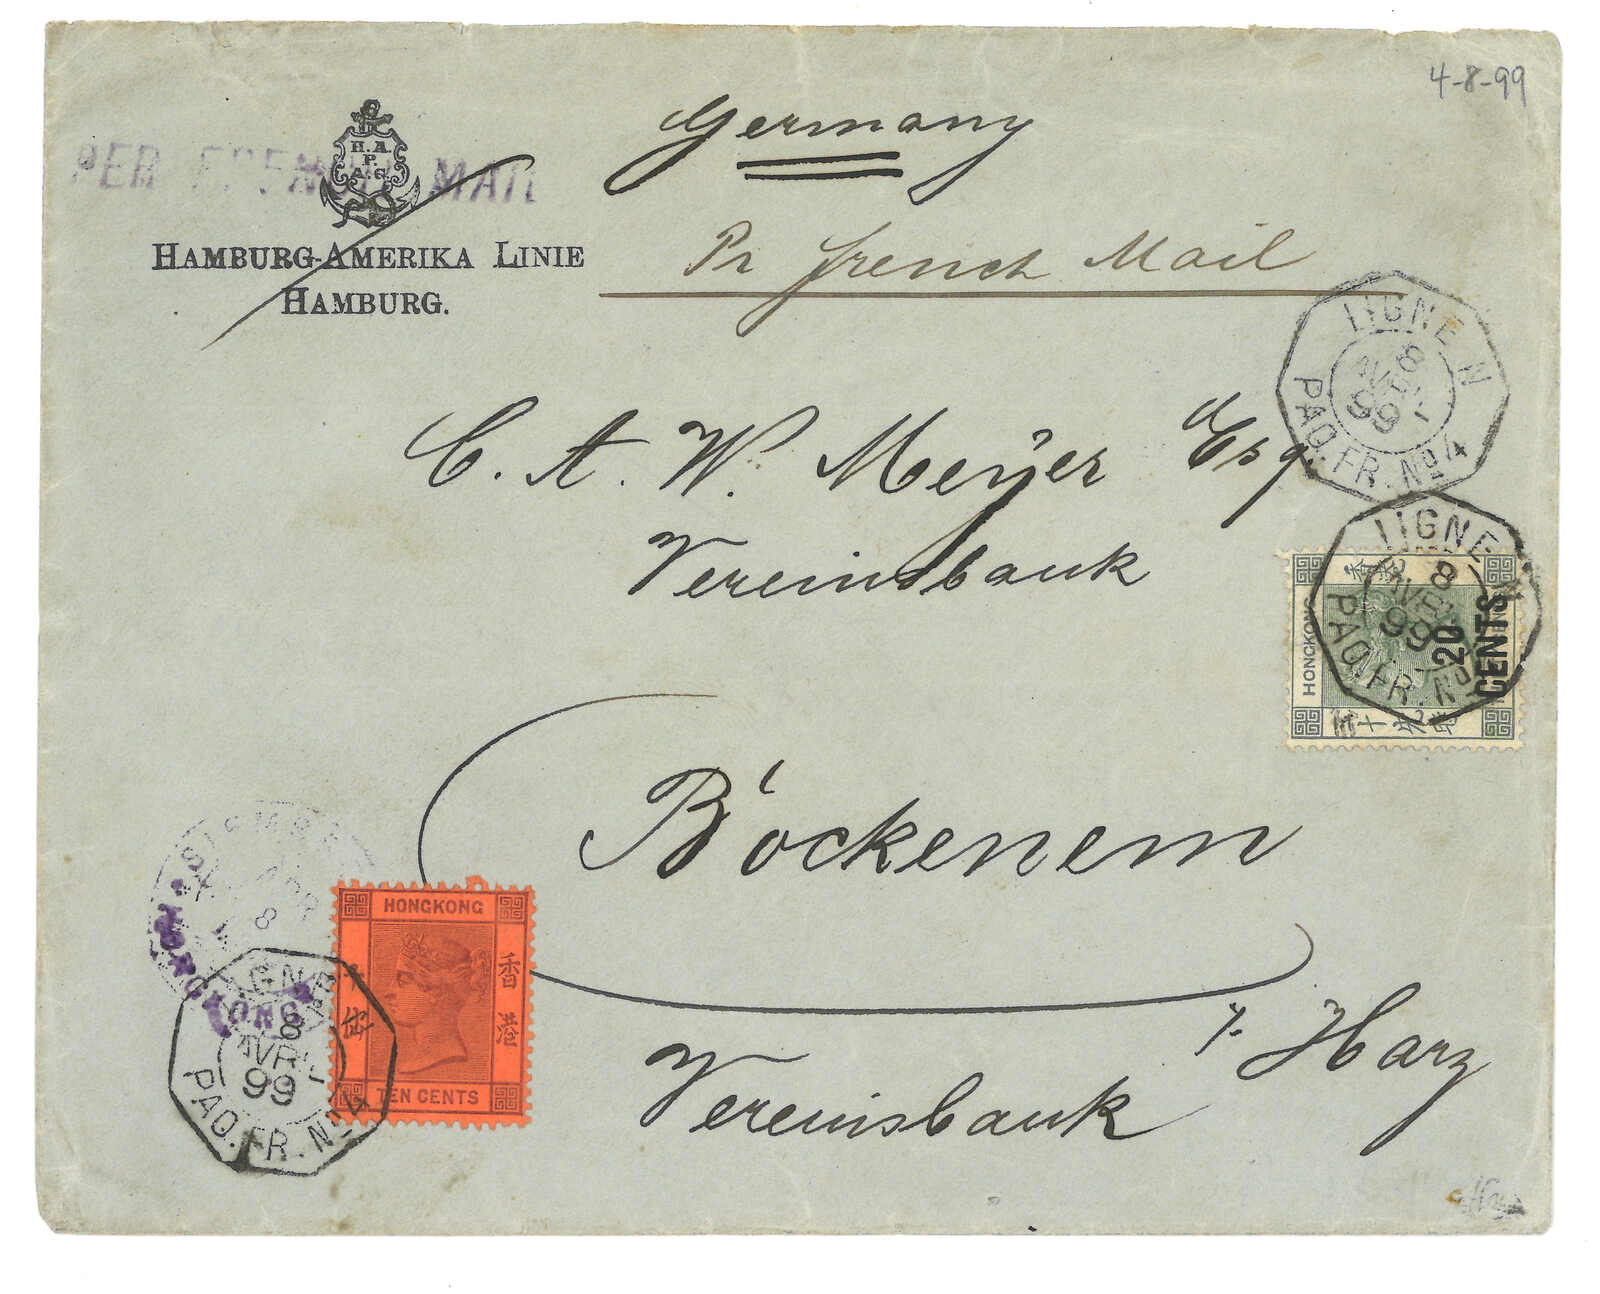 4-8-99
PER FRENCH MAIL
H.A.
P.
A.G.
HAMBURG-AMERIKA LINIE
HAMBURG.
Germany
Pr french Mail
LIGNE N
8
AVRIL
99
PAQ. FR. No 4
C. A. W. Meyer Esq.
Vereinsbank
LIGNE N
8
AVRIL
99
PAQ. FR. No
HONGKONG
20
CENTS
Böckenem
Harz
Vereinsbank
8
LIGNE
8
AVRIL
99
PAQ. FR. No 4
HONGKONG
香港
TEN CENTS